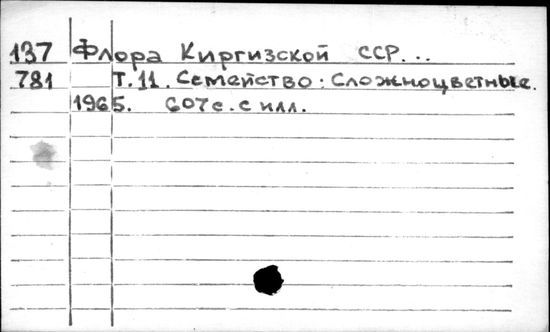 137 Флора Киргизской ССР...
781 Т.11. Семейство: Сложноцветные.
1965. 607с. с илл.